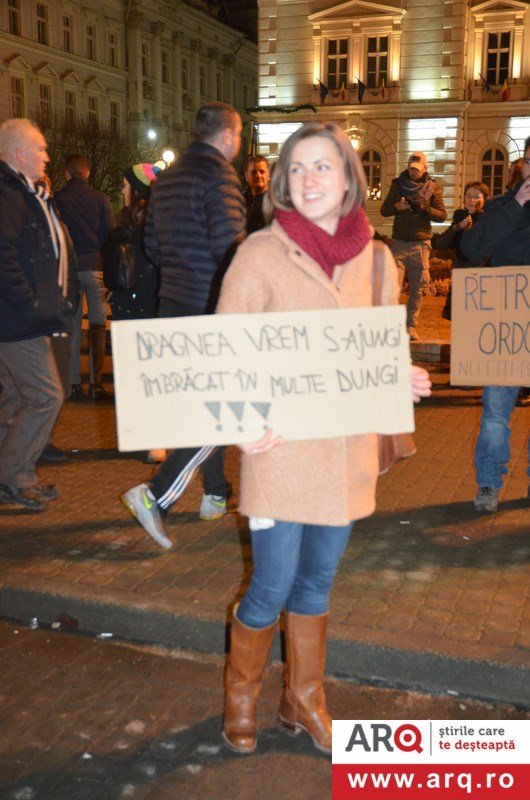 DRAGNEA VREM S-AJUNGI
ÎMBRĂCAT ÎN MULTE DUNGI
!!!
RETR
ORDO
NU FIȚI P
ARQ
știrile care
te deșteaptă
www.arq.ro